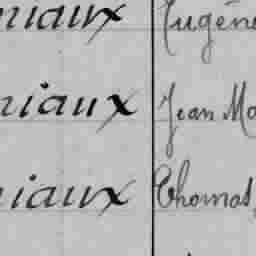 niaux Eugène
niaux Jean Ma
niaux Thomas,